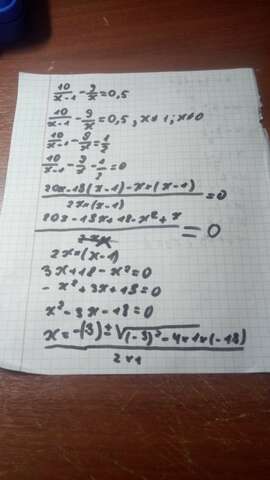 10/(x-1) - 9/x = 0,5
10/(x-1) - 9/x = 0,5, x≠1; x≠0
10/(x-1) - 9/x = 1/2
10/(x-1) - 9/x - 1/2 = 0
(20x-18(x-1)-x×(x-1))/(2x×(x-1)) = 0
(20x-18x+18-x²+x)/(2x×(x-1)) = 0
3x+18-x²=0
-x²+3x+18=0
x²-3x-18=0
x=(-(-3)±√((-3)²-4×1×(-18)))/(2×1)